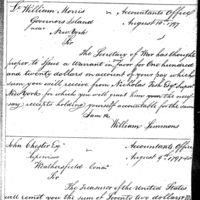 Lt. William Morris Accountants Office
Governors Island August 10th 1797
New York
Sir
The Secretary of War has thought
proper to issue a warrant in favor for One hundred
and twenty dollars on account of your pay which
sum you will receive from Nicholas Fish Esq. Super
New York for which you will grant him very the
receipts holding yourself accountable for the same
I am &c
William Simmons
John Chester Esqr Accountants Office
Supervisor August 9th 1797
Weathersfield Conn.
Sir
The Treasurer of the United States
will remit you the sum of Twenty two dollars